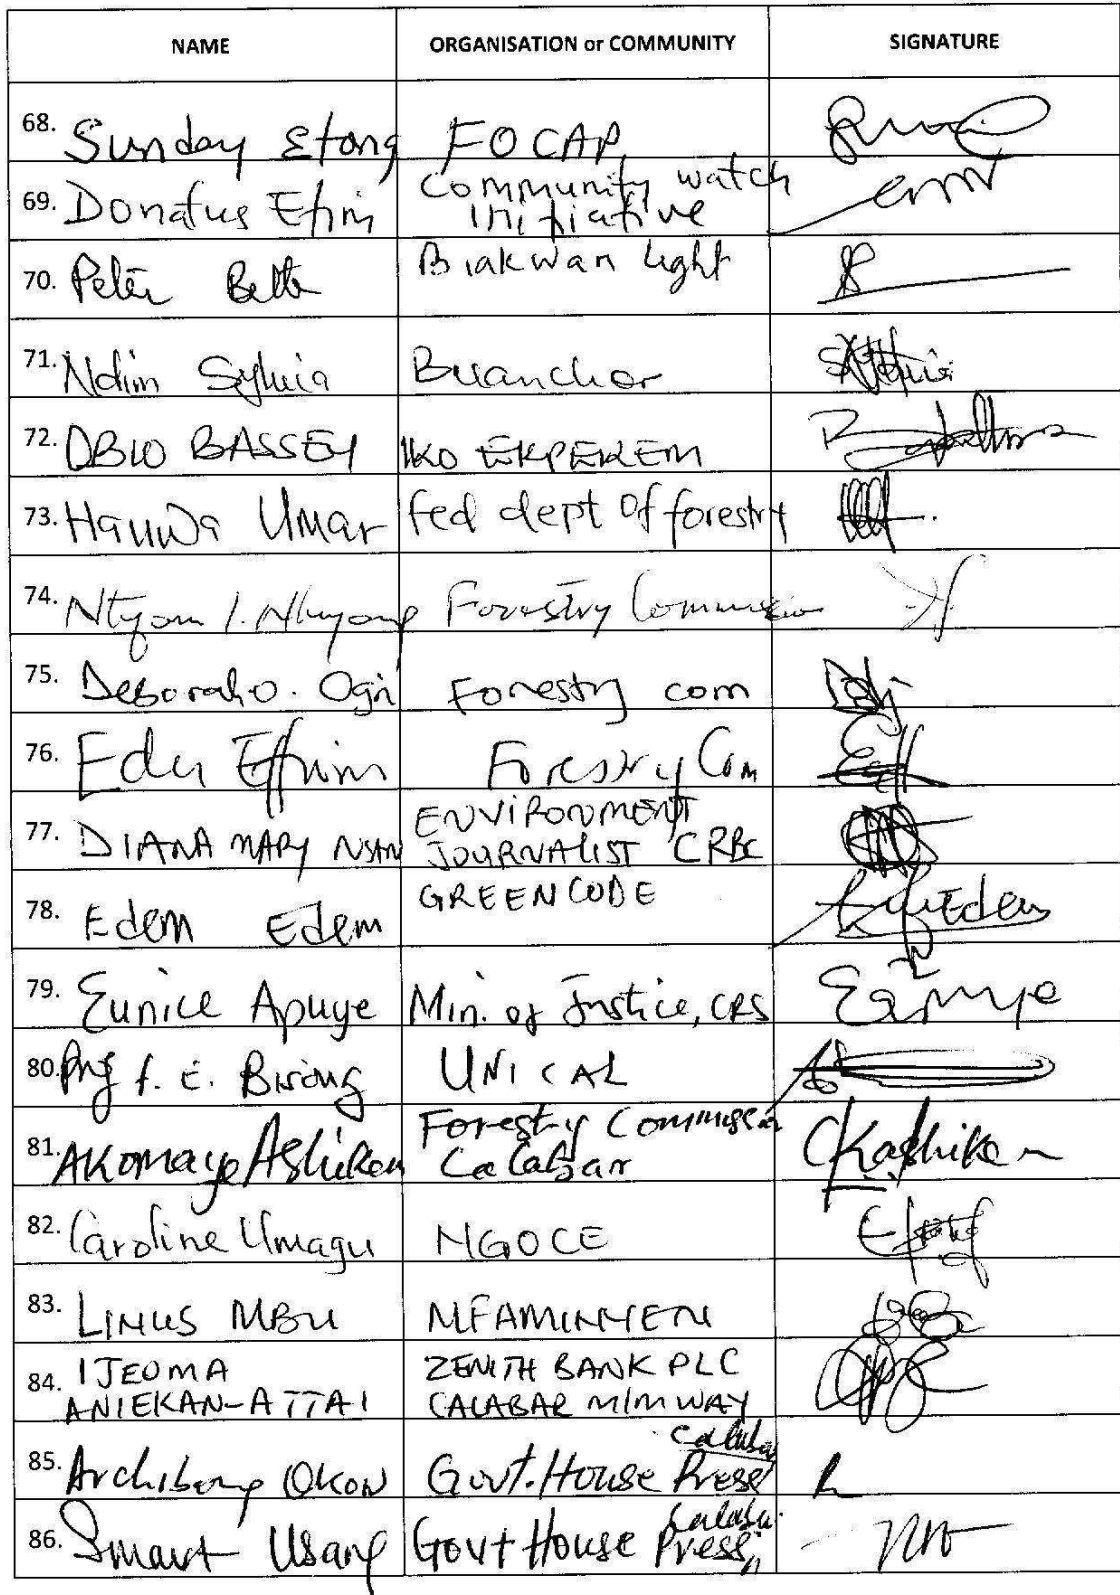 NAME ORGANISATION or COMMUNITY SIGNATURE
68. Sunday Etang FOCAP
69. Donatus Efim Community watch
Initiative
70. Peter Bette Biakwan light
71. Ndim Sylvia Buanchor
72. OBIO BASSEY IKO EKPEREM
73. Hauwa Umar fed dept of forestry
74. Forestry Commission
75. Deborah O. Forestry com
76. Edu Effiom Forestry Com
77. DIANA MARY NSAN ENVIRONMENT
JOURNALIST CRBC
78. Edem Edem GREENCODE
Edem
79. Eunice Apuye Min. of Justice, CRS
80. Prof F. E. Bisong UNICAL
81. Akomaye Ashiken Forestry Commission
Calabar
82. Caroline Umagu NGOCE
83. LINUS MBU MFAMINYEN
84. IJEOMA ZENITH BANK PLC
ANIEKAN-ATTAI CALABAR M/M WAY
Calabar
85. Archibong Okon Govt. House Press
Calabar
86. Smart Usang Govt House Press